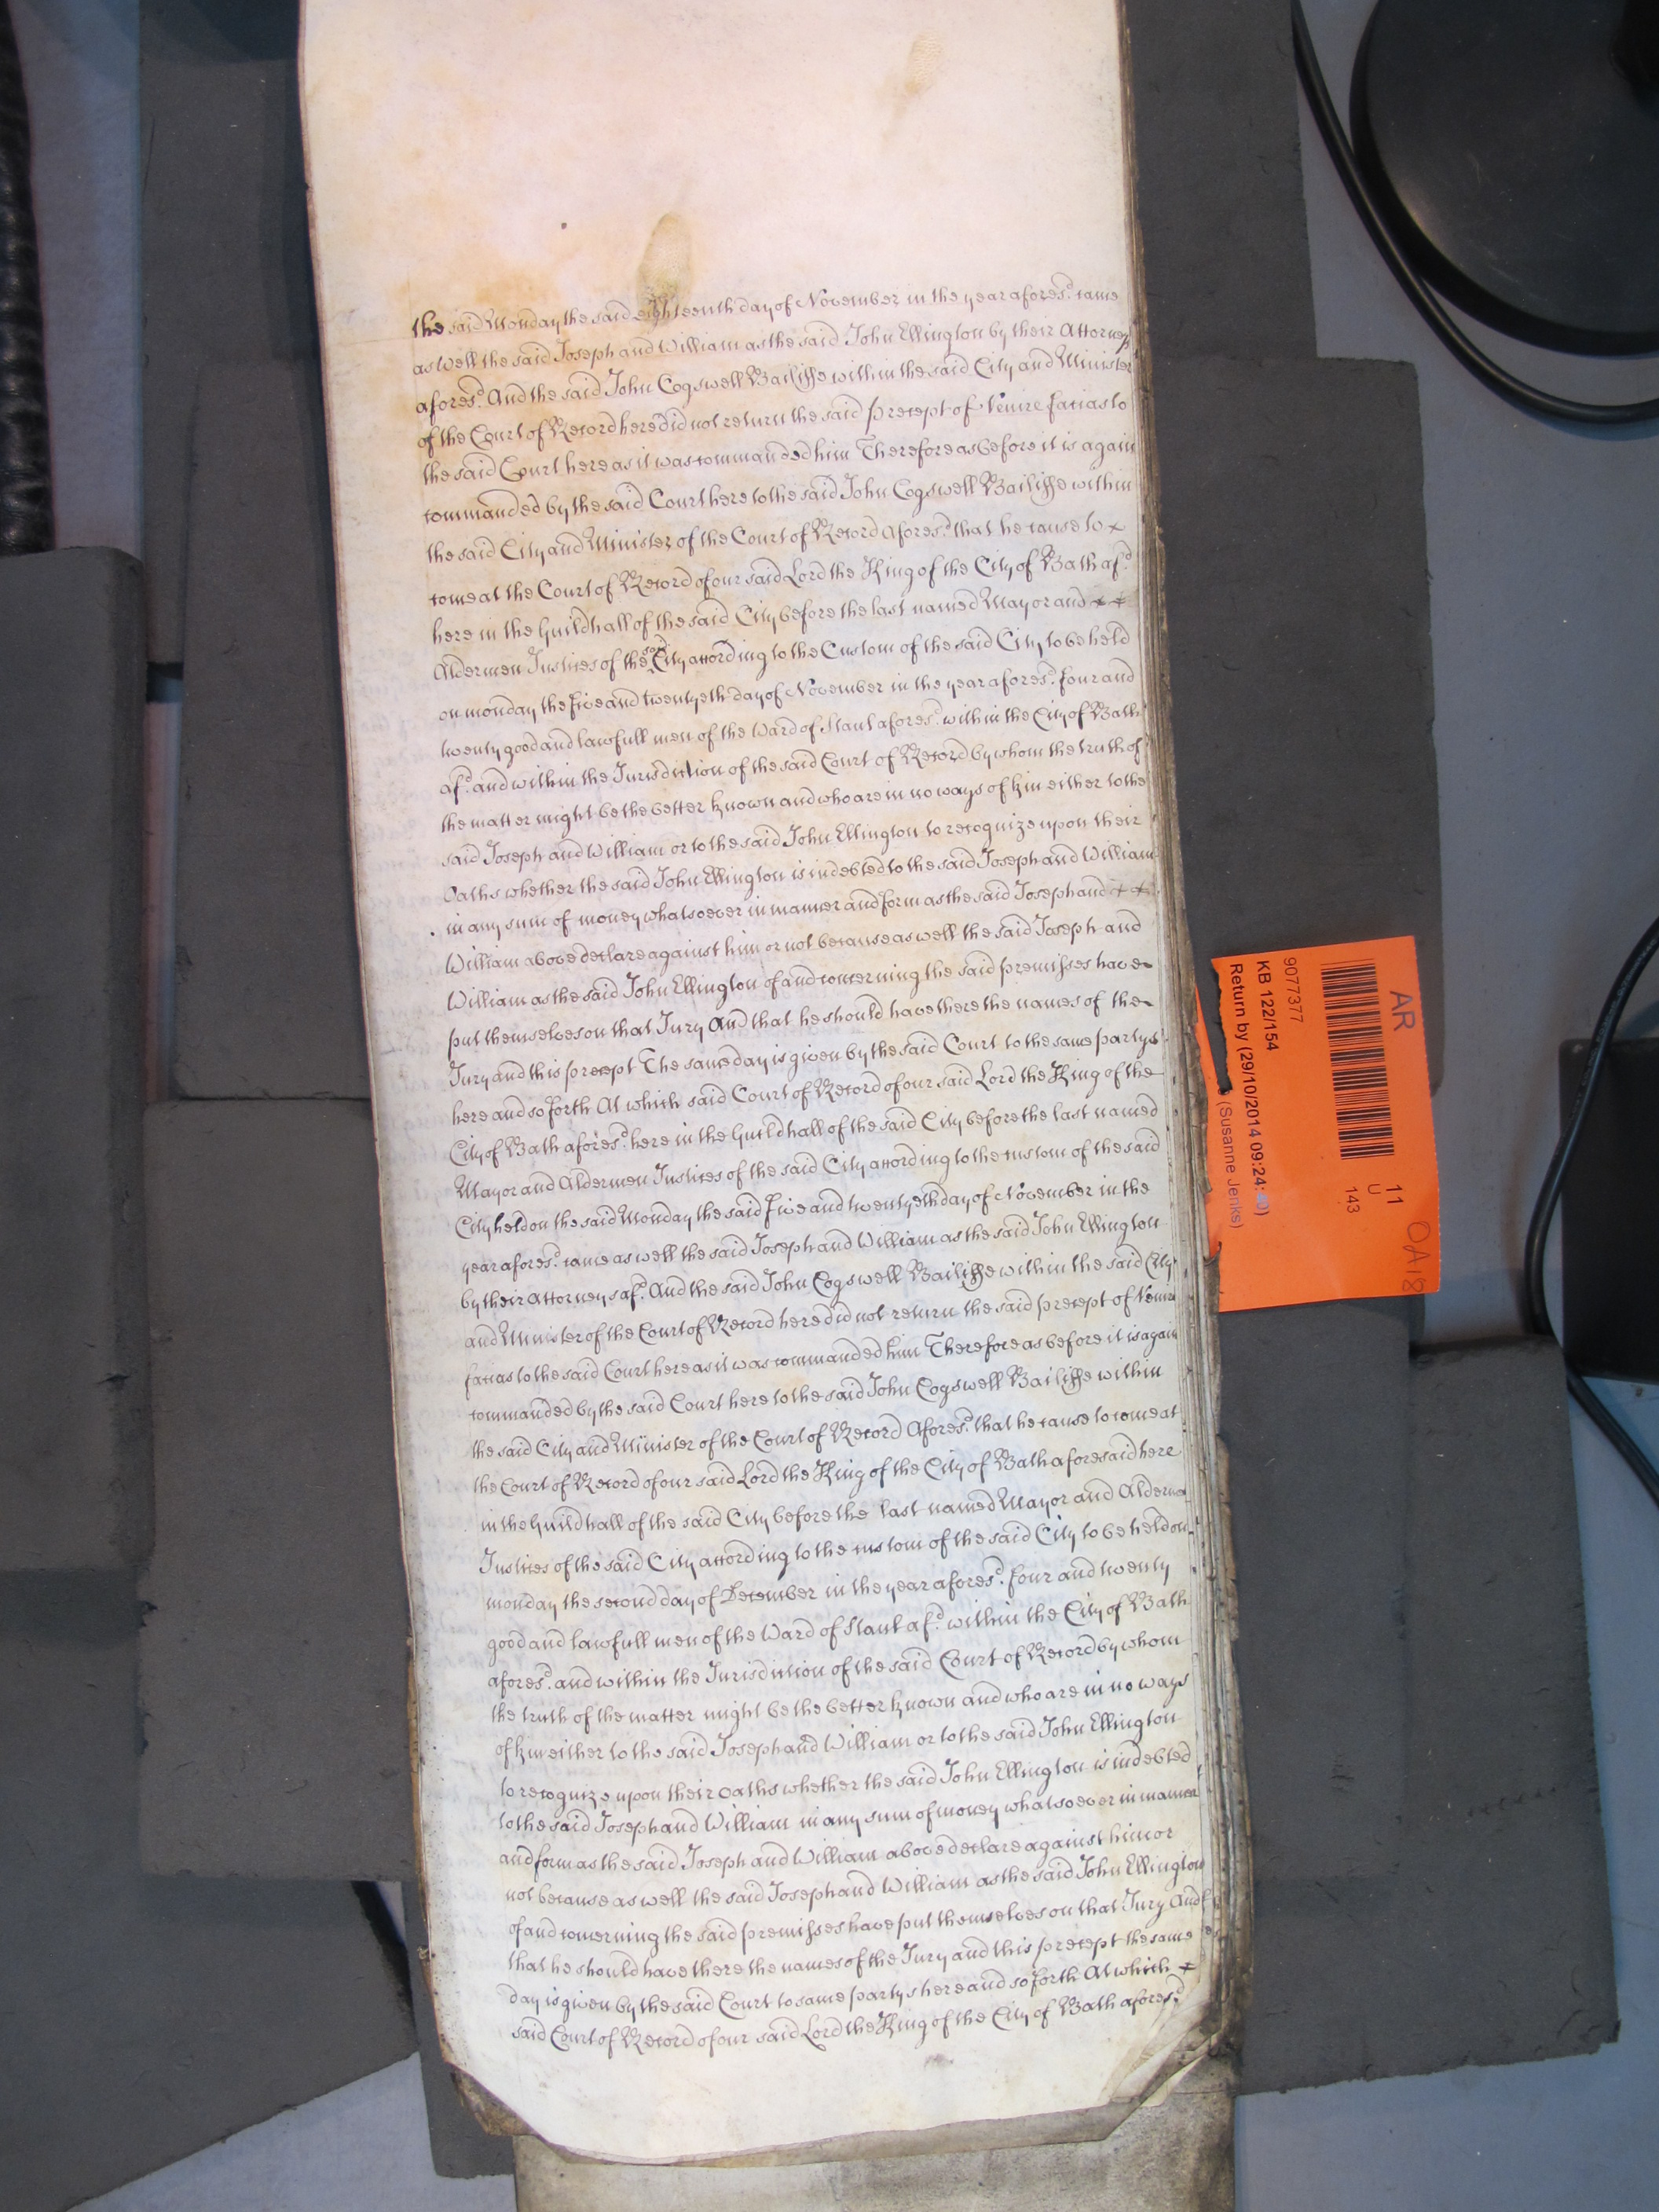 the said Monday the said eighteenth day of November in the year afores:d came
as well the said Joseph and William as the said John Ellington by their Attorneys
afores:d And the said John Cogswell Bailiffe within the said City and Minister
of the Court of Record here did not return the said precept of Venire facias to
the said Court here as it was commanded him Therefore as before it is again
commanded by the said Court here to the said John Cogswell Bailiffe within
the said City and Minister of the Court of Record afores:d that he cause to x
come at the Court of Record of our said Lord the King of the City of Bath af:d
here in the Guildhall of the said City before the last named Mayor and x x
Aldermen Justices of the said City according to the Custom of the said City to be held
on monday the five and twentyeth day of November in the year afores:d four and
twenty good and lawfull men of the Ward of Staul afores:d within the City of Bath
af:d and within the Jurisdiction of the said Court of Record by whom the truth of
the matter might be the better known and who are in no ways of kin either to the
said Joseph and William or to the said John Ellington to recognize upon their
Oaths whether the said John Ellington is indebted to the said Joseph and William
in any sum of money whatsoever in manner and form as the said Joseph and x x
William above declare against him or not because as well the said Joseph and
William as the said John Ellington of and concerning the said premisses have
put themselves on that Jury And that he should have there the names of the
Jury and this precept The same day is given by the said Court to the same partys
here and so forth At which said Court of Record of our said Lord the King of the
City of Bath afores:d here in the Guildhall of the said City before the last named
Mayor and Aldermen Justices of the said City according to the custom of the said
City held on the said Monday the said five and twentyeth day of November in the
year afores:d came as well the said Joseph and William as the said John Ellington
by their Attorneys af:d And the said John Cogswell Bailiffe within the said City
and Minister of the Court of Record here did not return the said precept of Venire
facias to the said Court here as it was commanded him Therefore as before it is again
commanded by the said Court here to the said John Cogswell Bailiffe within
the said City and Minister of the Court of Record Afores:d that he cause to come at
the Court of Record of our said Lord the King of the City of Bath aforesaid here
in the Guildhall of the said City before the last named Mayor and Alderme
Justices of the said City according to the custom of the said City to be held on
monday the second day of December in the year afores:d four and twenty
good and lawfull men of the Ward of Staul af:d within the City of Bath
afores:d and within the Jurisdiction of the said Court of Record by whom
the truth of the matter might be the better known and who are in no ways
of kin either to the said Joseph and William or to the said John Ellington
to recognize upon their oaths whether the said John Ellington is indebted
to the said Joseph and William in any sum of money whatsoever in manner
and form as the said Joseph and William above declare against him or
not because as well the said Joseph and William as the said John Ellington
of and concerning the said premisses have put themselves on that Jury And
that he should have there the names of the Jury and this precept the same
day is given by the said Court to same partys here and so forth At which x
said Court of Record of our said Lord the King of the City of Bath afores:d
AR
11
U
143
OA18
9077377
KB 122/154
Return by (29/10/2014 09:24:
(Susanne Jenks)